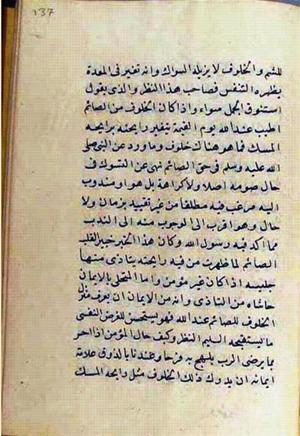 137
للشم والخلوف لا يزيله السواك وانه تغير في المعدة
يظهره التنفس فصاحب هذا النظر والذي يقول
الكل سواء واذا كان الخلوف من الصائم
اطيب عند الله يوم القيمة يتغير رايحته برايحة
المسك فما هو هناك خلوف وما ورد عن النبي صلى
الله عليه وسلم في حق الصائم نهي عن التسوك في
حال صومه اصلا ولا كراهة بل هو امر مندوب
اليه مرغب فيه مطلقا من غير تقييد بزمان ولا
حال وهو اقرب الى الوجوب منه الى الندب
مما اكد فيه رسول الله وكان هذا الخبر جبر لقلب
الصائم لما ظهرت من فيه رايحة يتاذى منها
جليسه اذا كان غير مؤمن واما المتحلي بالايمان
حاشاه من التاذي وانه من الايمان ان يعرف منزلة
الخلوف للصائم عند الله فهو يستحسن للغرض النفسي
ما يستقبحه السليم النظر وكيف حال المؤمن اذا اخبر
بما يرضي الرب يلهج به فرحا وعندنا بالذوق علامة
ايمانه ان يدرك ذلك الخلوف مثل رايحة المسك